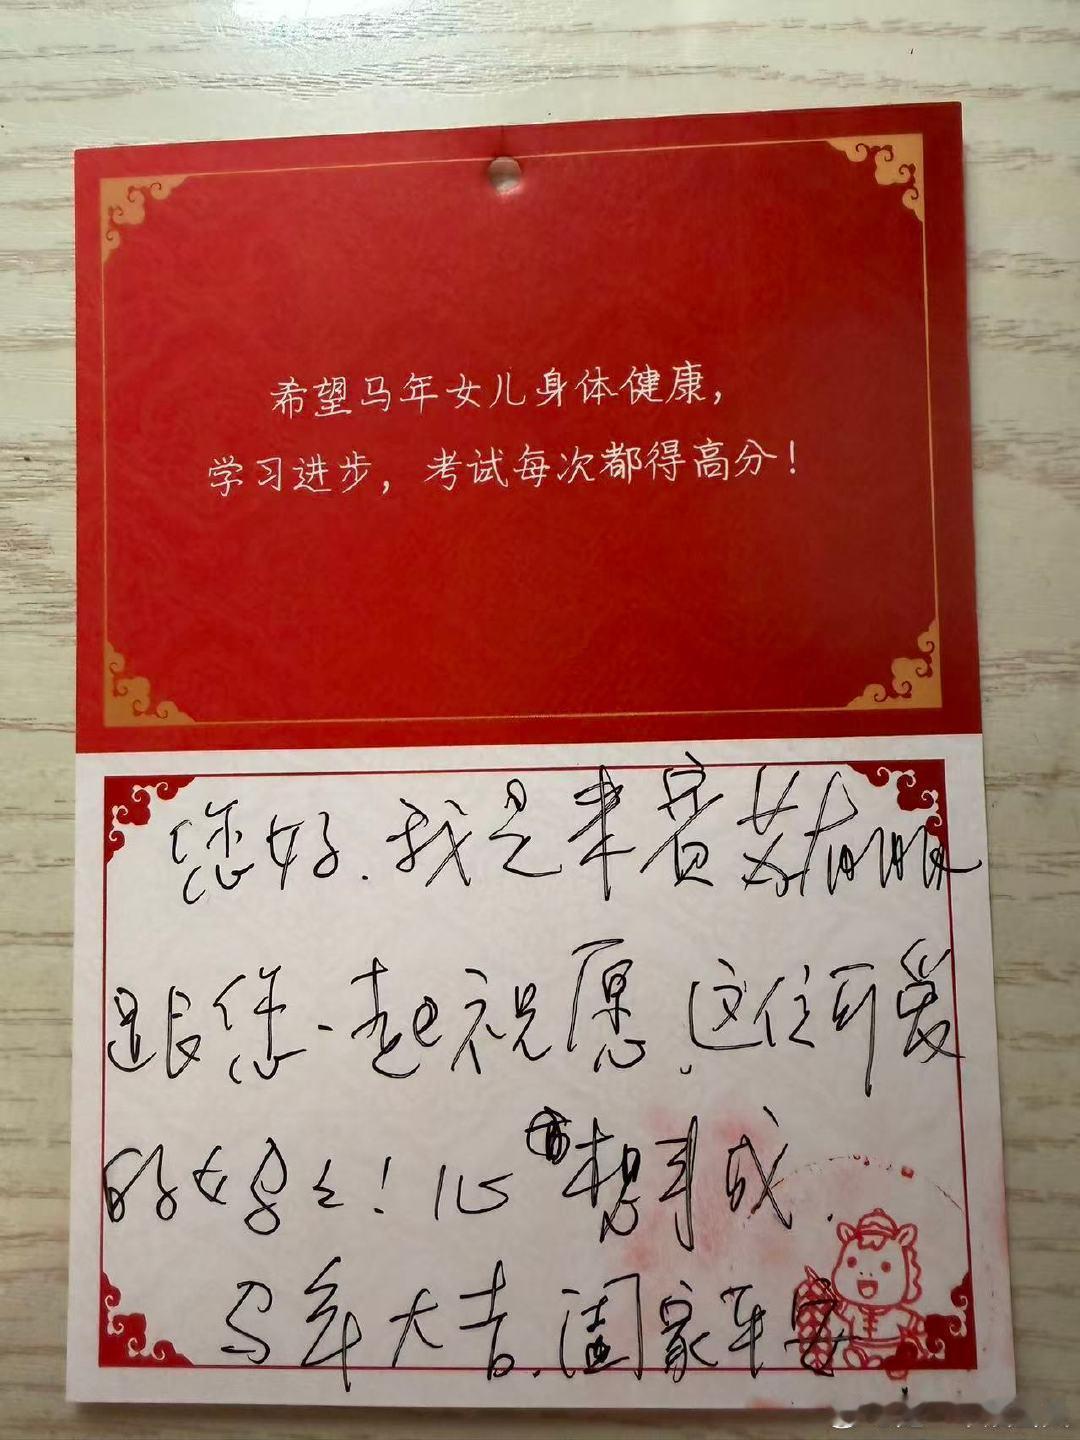 希望马年女儿身体健康，
学习进步，考试每次都得高分！
您好.我是来宾
跟您一起祝愿.这位可爱
的女婴！心想事成.
马年大吉.阖家平安